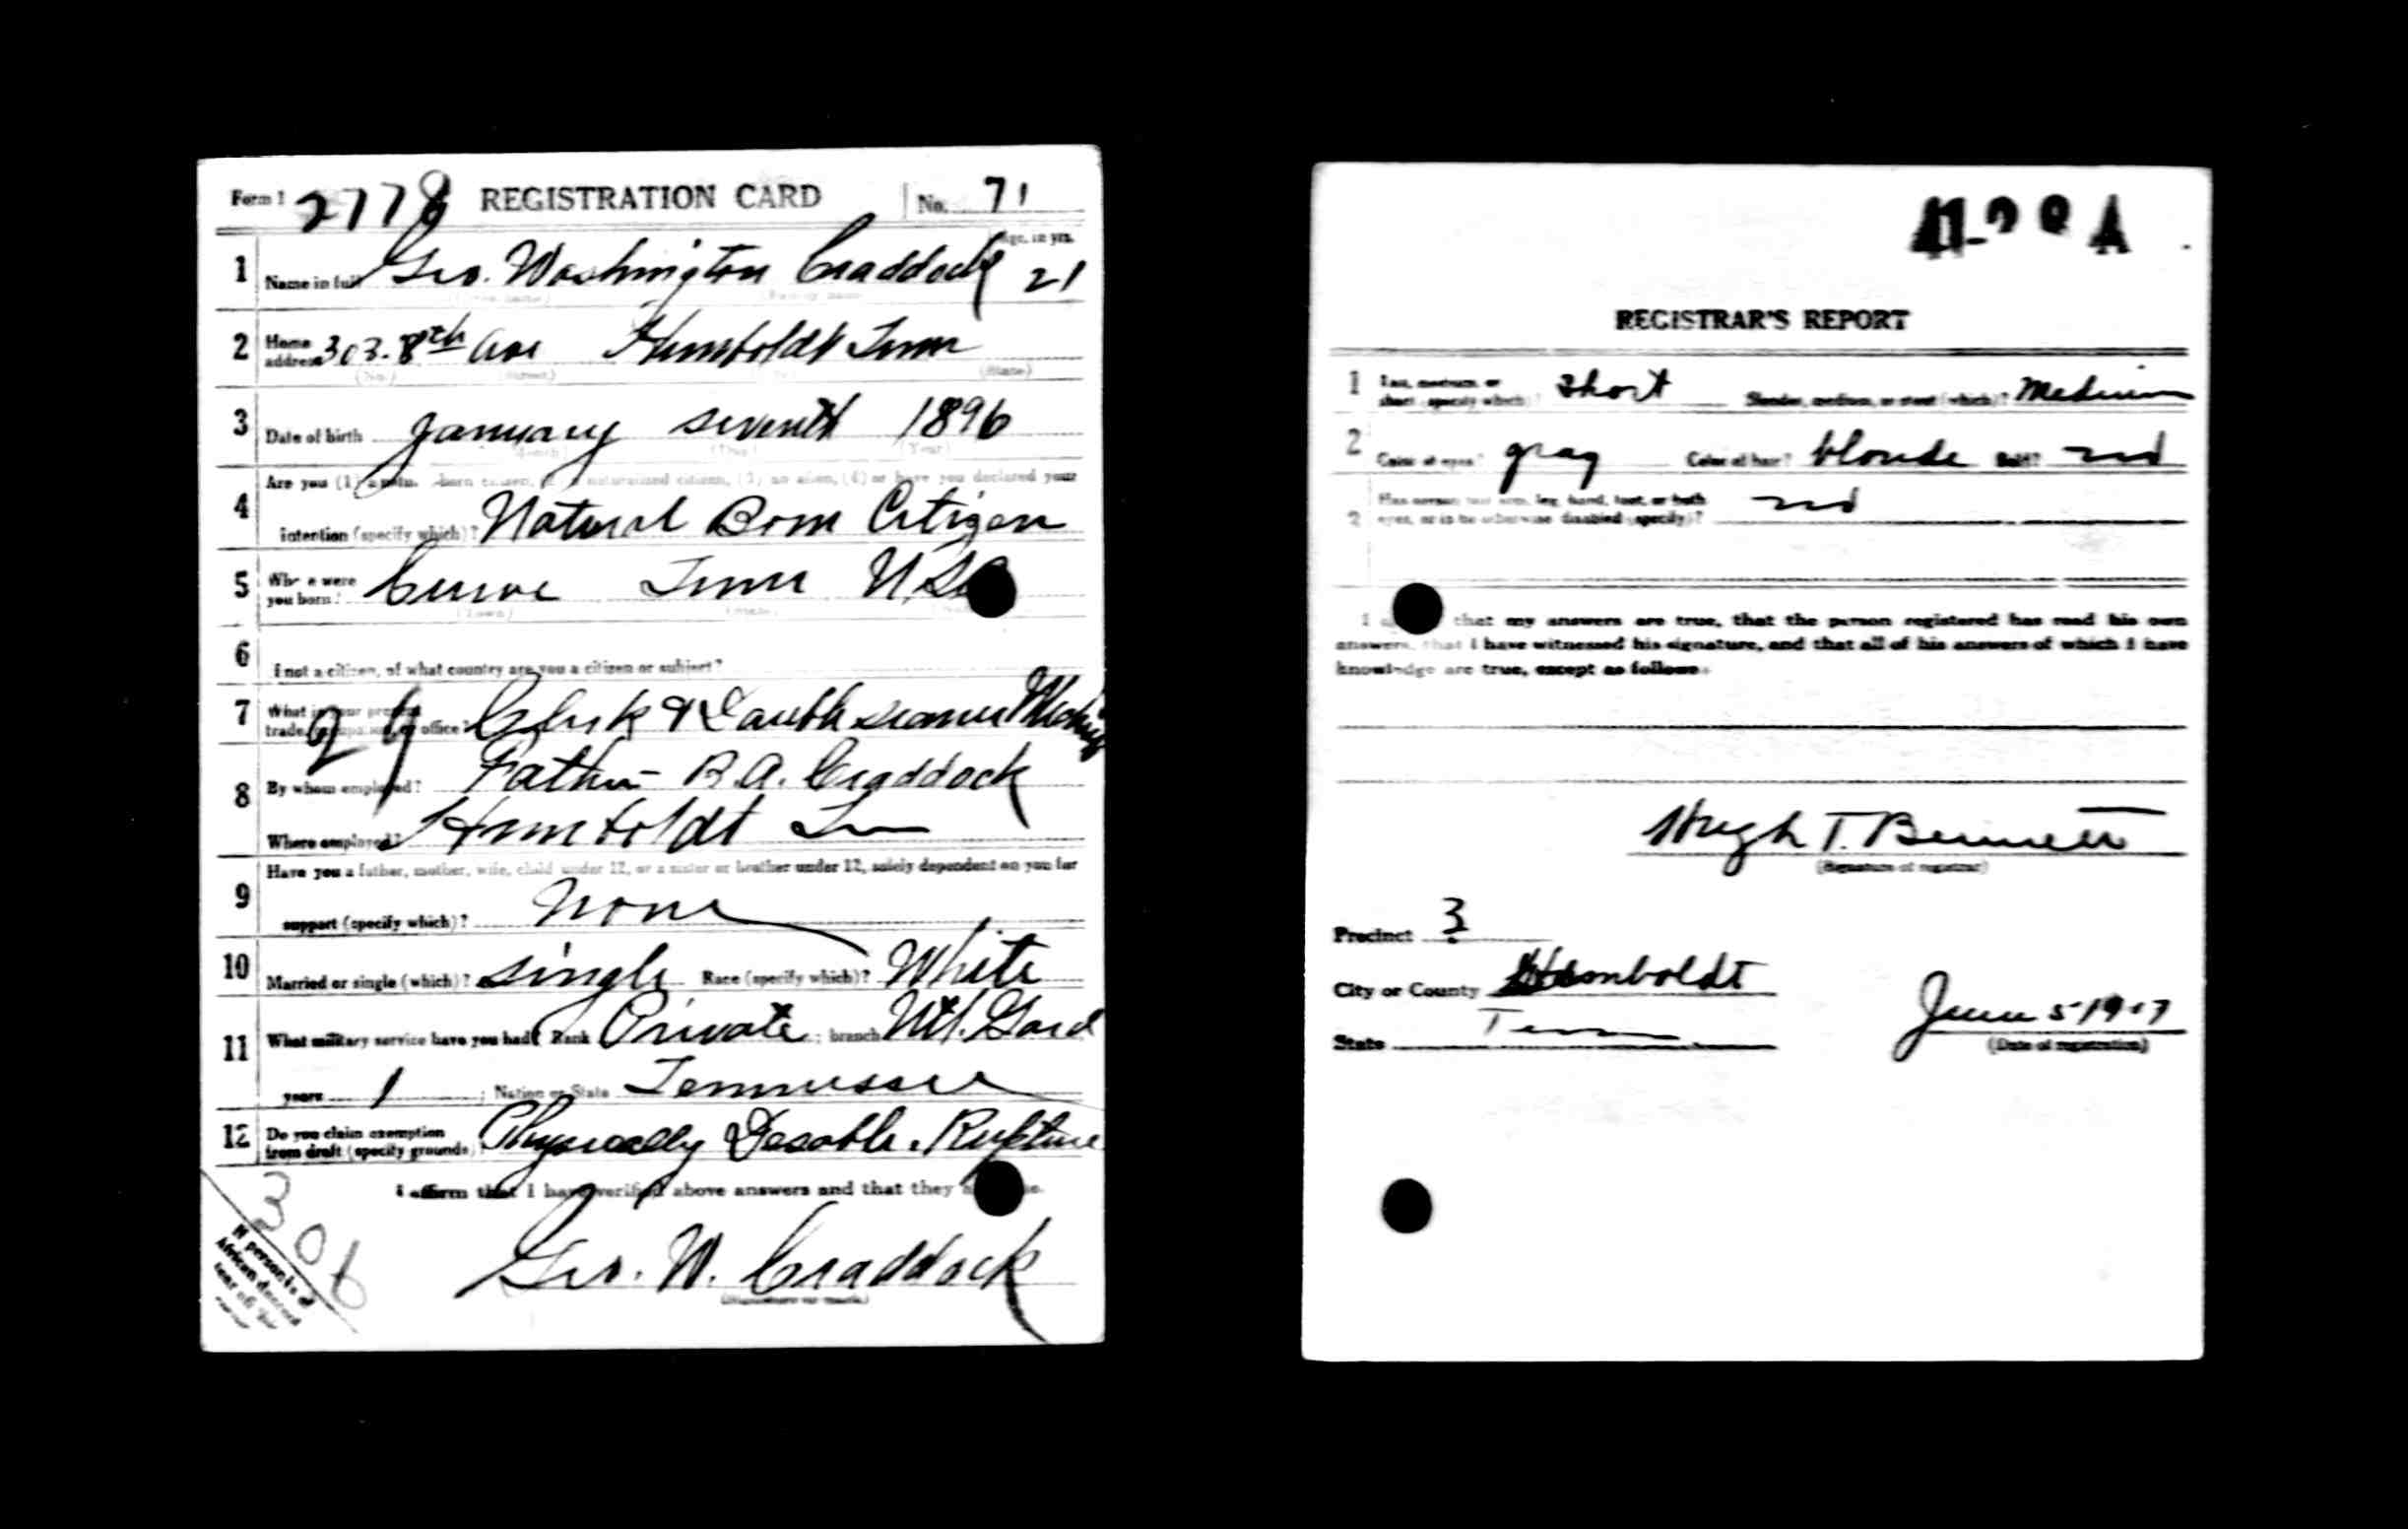 Form 1 2778 REGISTRATION CARD No. 71
Age, in yrs.
1 Name in full Geo. Washington Craddock 21
(Given name) (Family name)
2 Home address 303. 8th Ave Humboldt Tenn
(No.) (Street) (State)
3 Date of birth January seventh 1896
(Month) (Day) (Year)
Are you (1) a natural-born citizen, (2) a naturalized citizen, (3) an alien, (4) or have you declared your
4 intention (specify which)? Natural Born Citizen
5 Where were you born? Curve Tenn U.S.
(Town) (State)
6 If not a citizen, of what country are you a citizen or subject?
7 What is your present trade, occupation, or office? 29 Clerk &
8 By whom employed? Father B.A. Craddock
Where employed? Humboldt Tenn
Have you a father, mother, wife, child under 12, or a sister or brother under 12, solely dependent on you for
9 support (specify which)? None
10 Married or single (which)? Single Race (specify which)? White
11 What military service have you had? Rank Private ; branch Ntl. Gard
years 1 ; Nation or State Tennessee
12 Do you claim exemption from draft (specify grounds)? Physically Desable. Rupture
I affirm that I have verified above answers and that they are true.
Geo. W. Craddock
(Signature or mark)
306
If person is of
African descent
tear off this
corner
A
REGISTRAR'S REPORT
1 Tall, medium, or short (specify which)? Short Slender, medium, or stout (which)? Medium
2 Color of eyes? gray Color of hair? blonde Bald? no
Has person lost arm, leg, hand, foot, or both
eyes, or is he otherwise disabled (specify)? no
I that my answers are true, that the person registered has read his own
answers, that I have witnessed his signature, and that all of his answers of which I have
knowledge are true, except as follows:
Hugh T. Bennett
(Signature of registrar)
Precinct 3
City or County Humboldt
State Tenn
June 5 1917
(Date of registration)